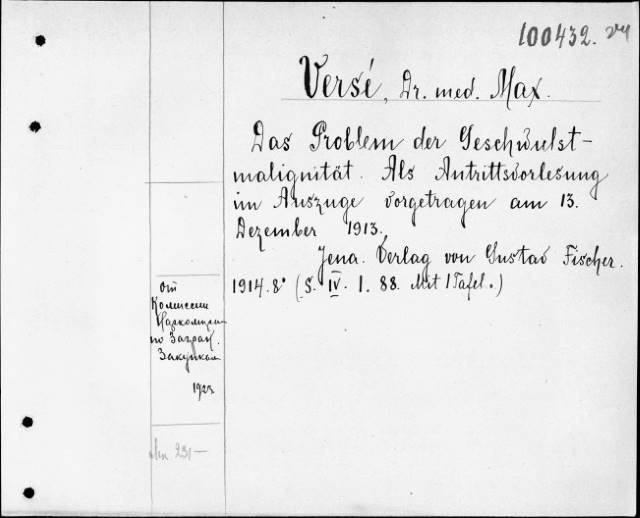 100432.
Versé, Dr. med. Max.
Das Problem der Geschwulst-
malignität. Als Antrittsvorlesung
im Auszuge vorgetragen am 13.
Dezember 1913.
Jena. Verlag von Gustav Fischer.
1914. 8° (S. IV. 1. 88. Mit 1 Tafel.)
От
Комиссии
Наркомпроса
по Загран.
Закупкам
231—